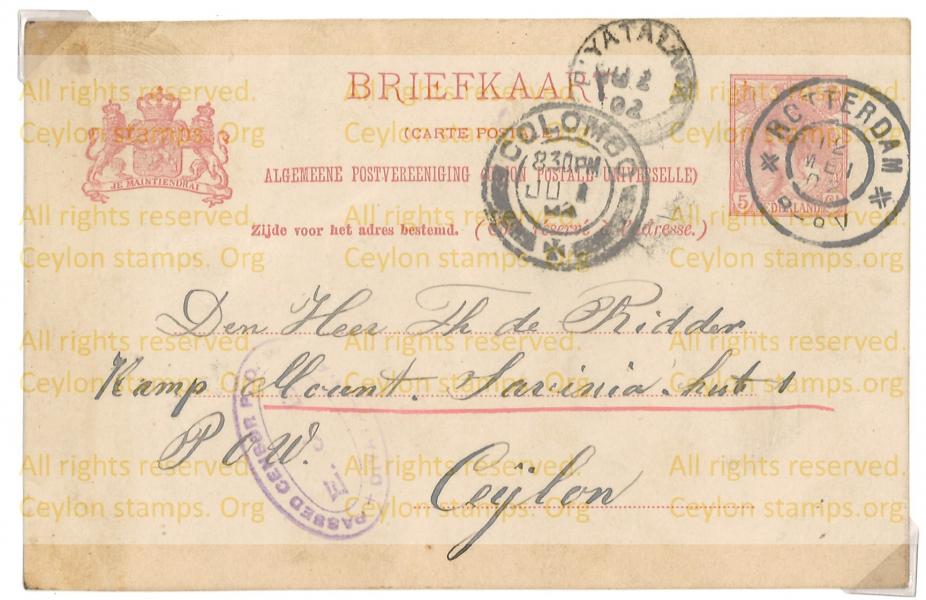 BRIEFKAART
(CARTE POSTALE)
ALGEMEENE POSTVEREENIGING (UNION POSTALE UNIVERSELLE)
Zijde voor het adres bestemd. (Côté réservé à l'adresse.)
JE MAINTIENDRAI
DIYATALAWA
JU 2
02
COLOMBO
830PM
JU 1
ROTTERDAM
5
Den Heer Th de Ridder
Kamp Mount. Savinia hut 1
P O W.
Ceÿlon
PASSED CENSOR
All rights reserved.
Ceylon stamps. Org
All rights reserved.
Ceylon stamps. Org
All rights reserved.
Ceylon stamps. Org
All rights reserved.
Ceylon stamps. Org
All rights reserved.
Ceylon stamps. Org
All rights reserved.
Ceylon stamps. Org
All rights reserved.
Ceylon stamps.org
All rights reserved.
Ceylon stamps.org
All rights reserved.
Ceylon stamps.org
All rights reserved.
Ceylon stamps. Org
All rights reserved.
Ceylon stamps. Org
All rights reserved.
Ceylon stamps. Org